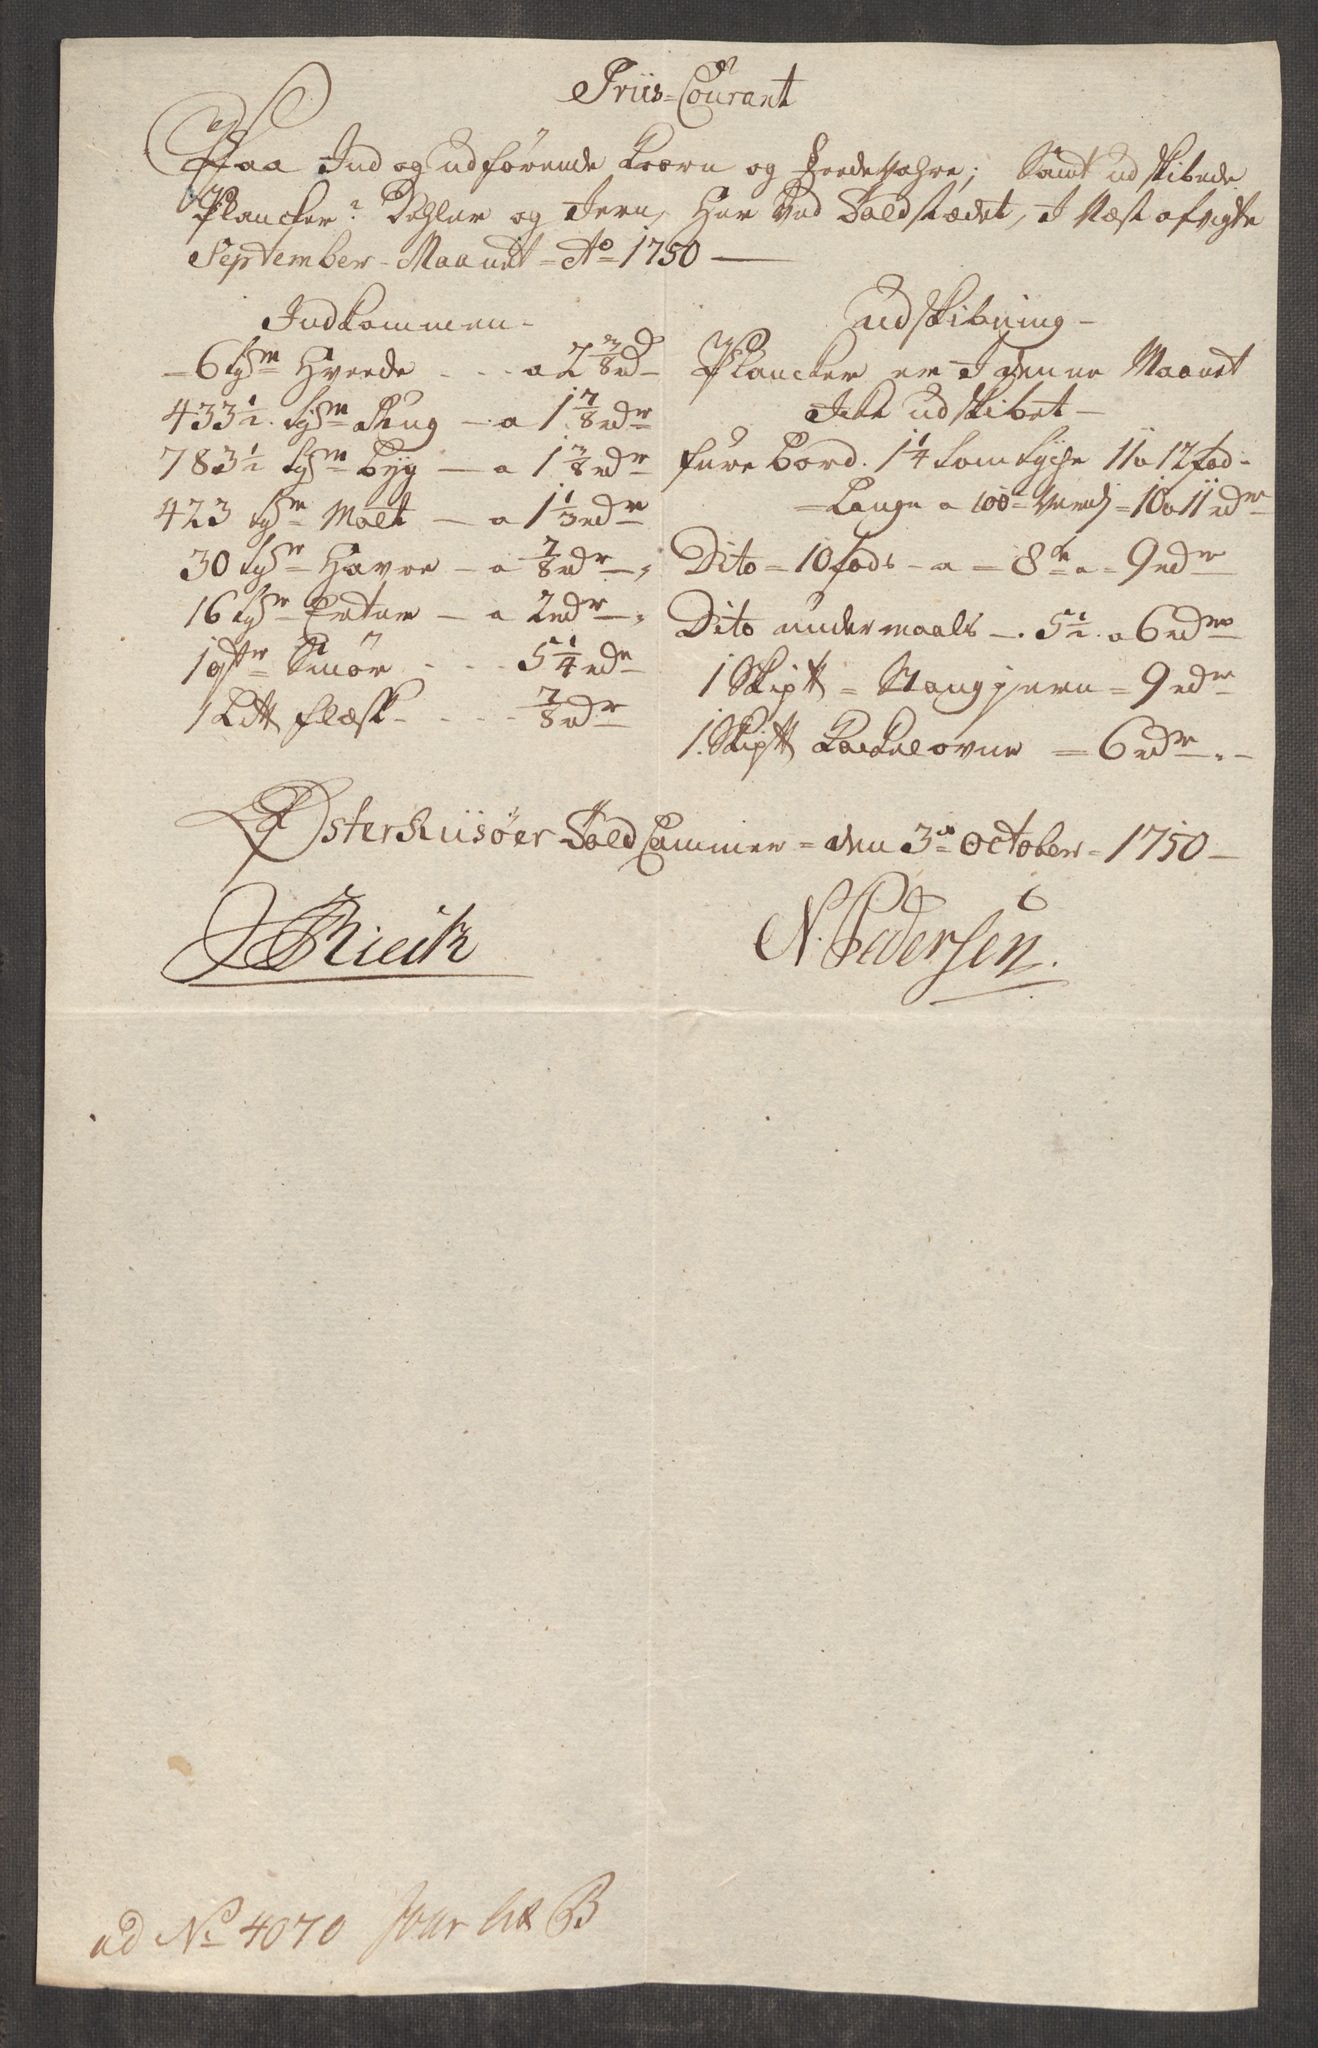 Priis-Courant
Paa Ind og udførende Koorn og Foedevahre; Samt udskibede
Plancker? Dehler og Jern, Her ved Toldstædet, I Næst afvigte
September-Maanet = Ao 1750 —
Indkommen-
= 6 tdr Hveede - - - a 2 3/8 rd
433 1/2 tdr Rug — a 1 7/8 rdr
783 1/2 tdr Byg — a 1 3/8 rdr
423 tdr Malt — a 1 1/3 rdr
30 tdr Havre — a 7/8 rdr
16 tdr Erter — a 2 rdr
1 Smør - - - 5 1/4 rdr
1 L℔ Flæsk - - - - 7/8 rdr
Udskibning-
Plancker er I denne Maanet
Icke udskibet —
Fure Bord. 1 1/4 tom tycke 11 a 12 fod-
= Lange a 100 = 10 a 11 rdr
Dito = 10 fods - a = 8te a = 9 rdr
Dito undermaals —. 5 1/2. a 6 rdr
1 Skip℔ = Stangjern = 9 rdr
1. Skip℔ Kackelovne = 6 rdr.-
Østerriisøer Told Cammer = den 3de October = 1750 —
N. Pedersen.
ad No 4070 Jour Lit B